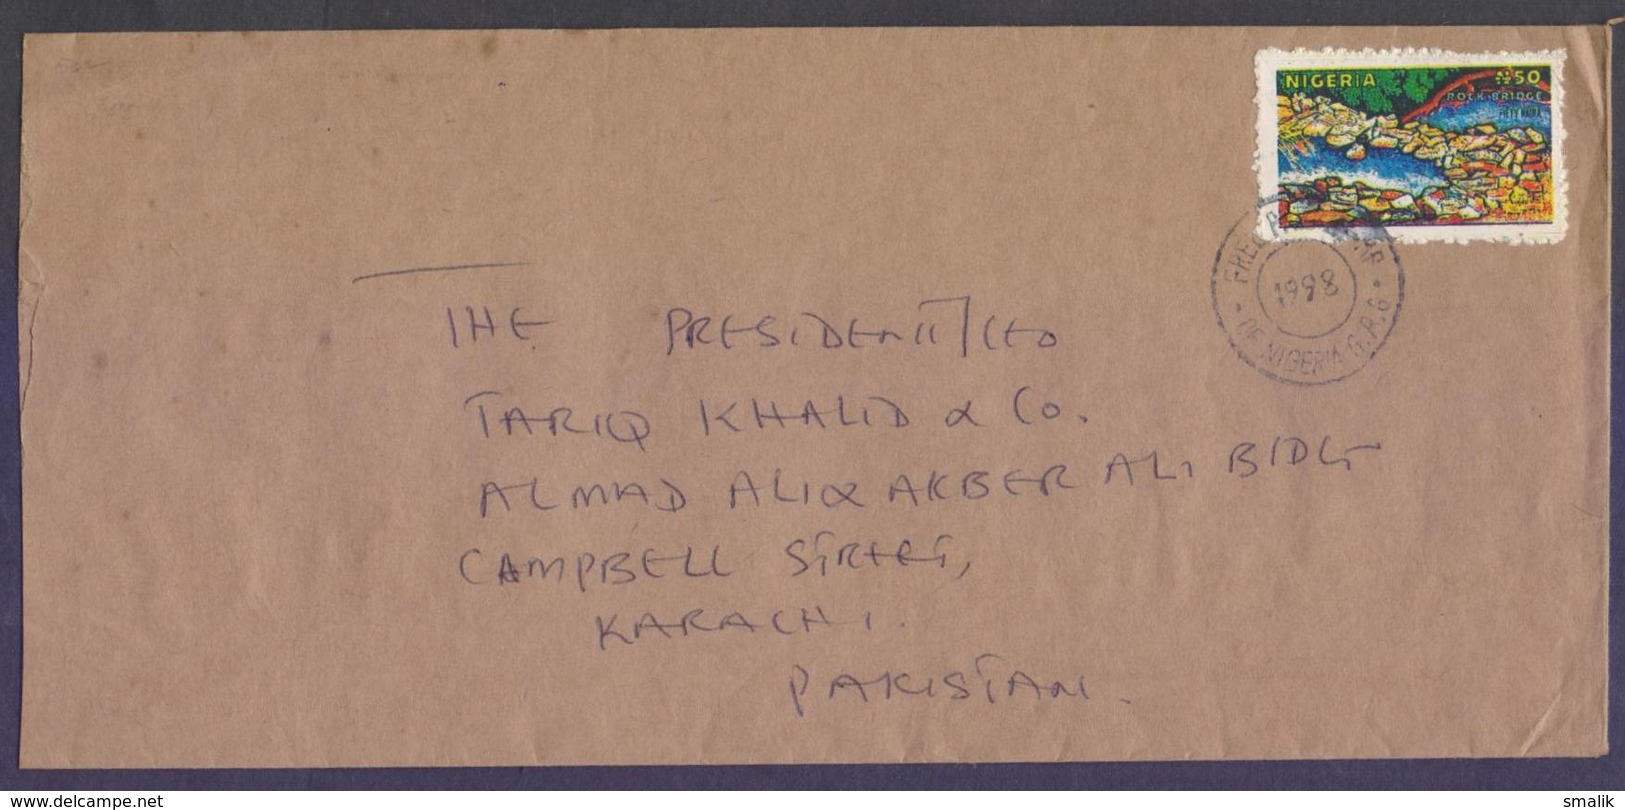 NIGERIA ₦50
ROCK BRIDGE
FIFTY NAIRA
1998
OF NIGERIA G.P.6
THE PRESIDENT/CEO
TARIQ KHALID & Co.
ALMAD ALI & AKBER ALI BIDG
CAMPBELL STREET,
KARACHI.
PAKISTAN.
www.delcampe.net
smalik